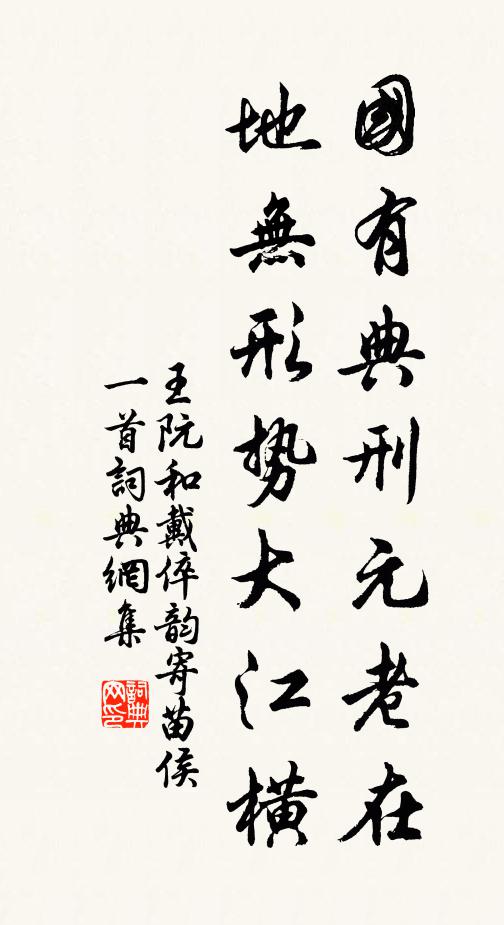 國有典刑元老在
地無形势大江橫
王阮和戴倅韵寄苗侯
一首詞典網集
詞典网印